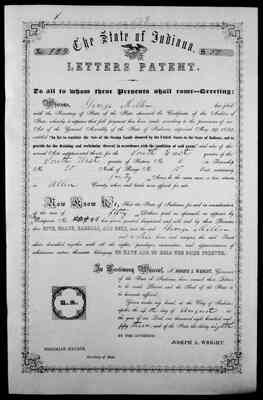 The State of Indiana,
LETTERS PATENT.
To all to whom these Presents shall come—Greeting:
Whereas, George Miller has filed
with the Secretary of State of the State aforesaid the Certificate of the Auditor of
State, whereby it appears that full payment has been made according to the provisions of an
Act of the General Assembly of the State of Indiana, approved May 1852,
entitled "An Act to regulate the sale of the Swamp Lands donated by the United States to the State of Indiana, and to
provide for the draining and reclaiming thereof in accordance with the condition of said grant," and acts of the
annual Acts supplemental thereto, for the North East quarter of the
North West quarter of Section No. in Township
No. North of Range No. East containing
Forty Acres be the same more or less, situate in
Allen County, which said tracts were offered for sale.
Now Know Ye, That the State of Indiana for and in consideration of
the sum of Fifty Dollars paid as aforesaid,
GIVE, GRANT, BARGAIN, AND SELL, unto the said George Miller
and to his heirs and assigns the said Tract
above described together with all the rights, privileges, immunities and appurtenances of
whatsoever nature thereunto belonging, TO HAVE AND TO HOLD THE SAME FOREVER.
In Testimony Whereof, I, JOSEPH A. WRIGHT, Governor
of the State of Indiana have caused these Letters
to be made Patent and the Seal of the State to
be hereunto affixed.
Given under my hand, at the City of Indianapolis
the day of August
the year of our Lord, one thousand eight hundred and
fifty three and of the State the thirty eighth
BY THE GOVERNOR:
JOSEPH A. WRIGHT.
NEHEMIAH HAYDEN,
Secretary of State.